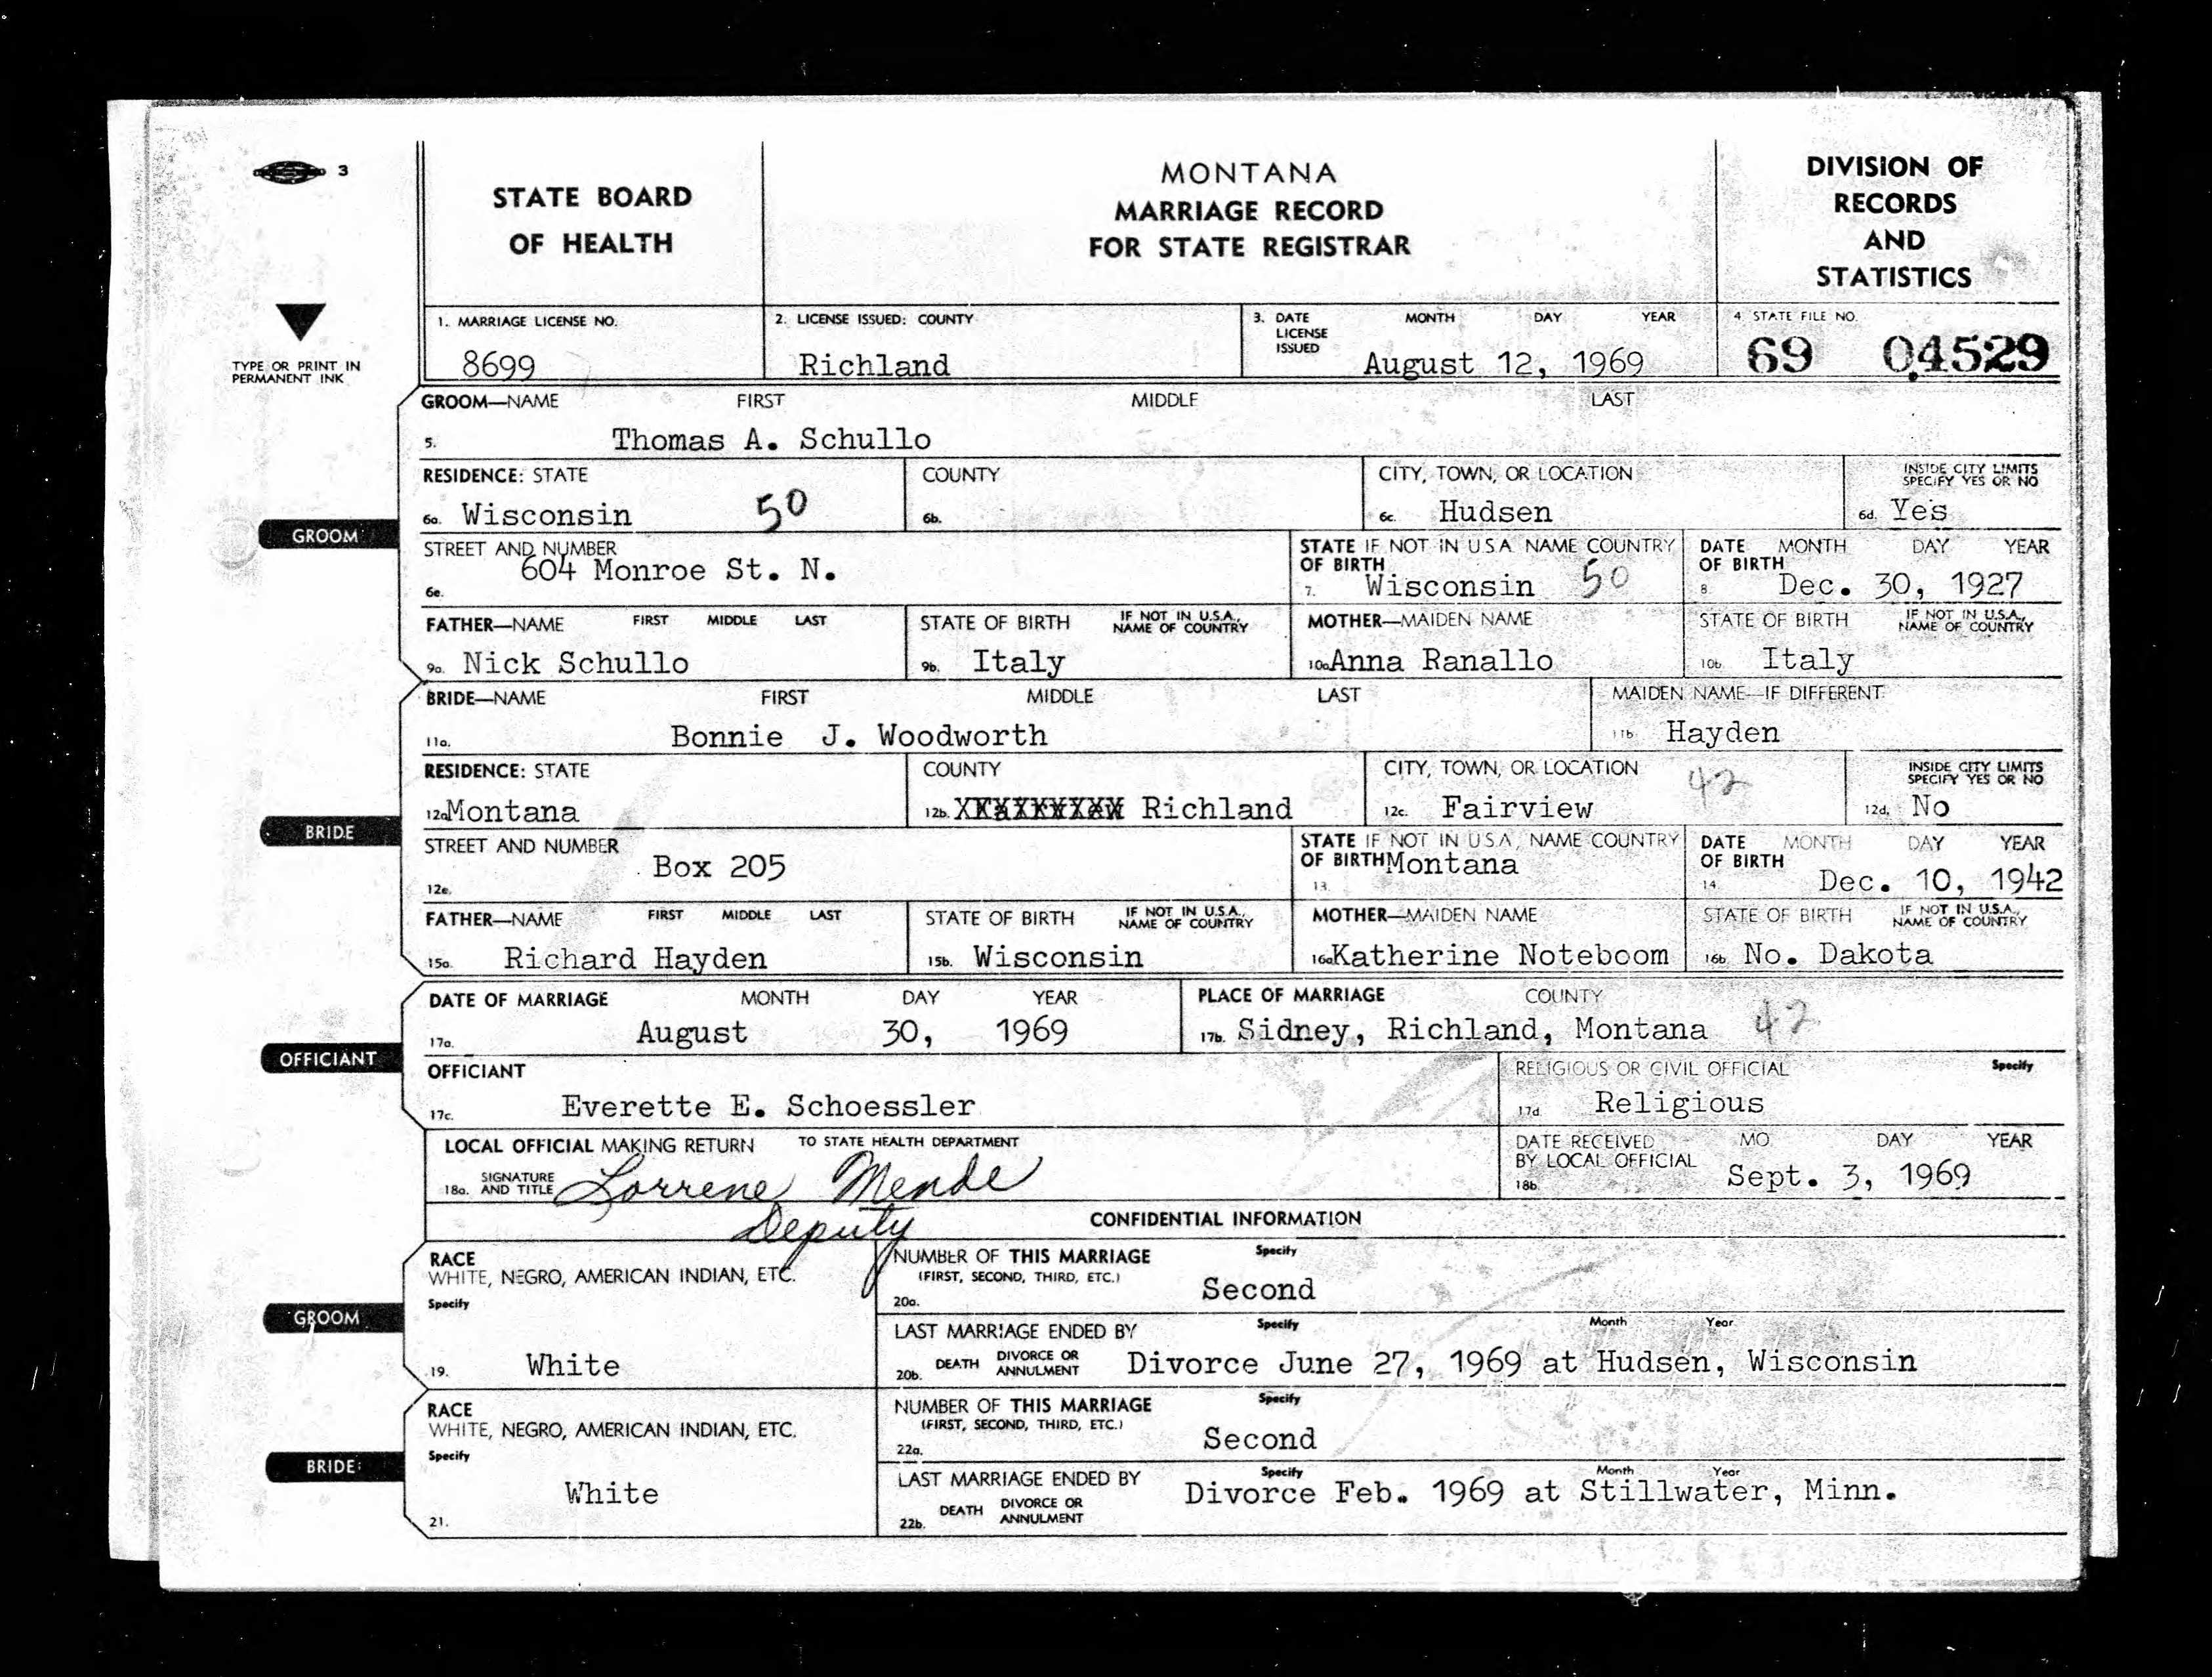 3
STATE BOARD
OF HEALTH
MONTANA
MARRIAGE RECORD
FOR STATE REGISTRAR
DIVISION OF
RECORDS
AND
STATISTICS
TYPE OR PRINT IN
PERMANENT INK
1. MARRIAGE LICENSE NO.
8699
2. LICENSE ISSUED: COUNTY
Richland
3. DATE LICENSE ISSUED MONTH DAY YEAR
August 12, 1969
4 STATE FILE NO.
69 04529
GROOM—NAME FIRST MIDDLE LAST
5. Thomas A. Schullo
GROOM
RESIDENCE: STATE
6a. Wisconsin 50
COUNTY
6b.
CITY, TOWN, OR LOCATION
6c. Hudsen
INSIDE CITY LIMITS
SPECIFY YES OR NO
6d. Yes
STREET AND NUMBER
604 Monroe St. N.
6e.
STATE IF NOT IN U.S.A. NAME COUNTRY
OF BIRTH
7. Wisconsin 50
DATE MONTH DAY YEAR
OF BIRTH
8. Dec. 30, 1927
FATHER—NAME FIRST MIDDLE LAST
9a. Nick Schullo
STATE OF BIRTH IF NOT IN U.S.A., NAME OF COUNTRY
9b. Italy
MOTHER—MAIDEN NAME
10a Anna Ranallo
STATE OF BIRTH IF NOT IN U.S.A., NAME OF COUNTRY
10b. Italy
BRIDE—NAME FIRST MIDDLE LAST
11a. Bonnie J. Woodworth
MAIDEN NAME—IF DIFFERENT
11b. Hayden
BRIDE
RESIDENCE: STATE
12a Montana
COUNTY
12b. Richland
CITY, TOWN, OR LOCATION 42
12c. Fairview
INSIDE CITY LIMITS
SPECIFY YES OR NO
12d. No
STREET AND NUMBER
Box 205
12e.
STATE IF NOT IN U.S.A., NAME COUNTRY
OF BIRTH Montana
13.
DATE MONTH DAY YEAR
OF BIRTH
14. Dec. 10, 1942
FATHER—NAME FIRST MIDDLE LAST
15a. Richard Hayden
STATE OF BIRTH IF NOT IN U.S.A., NAME OF COUNTRY
15b. Wisconsin
MOTHER—MAIDEN NAME
16a Katherine Noteboom
STATE OF BIRTH IF NOT IN U.S.A., NAME OF COUNTRY
16b. No. Dakota
DATE OF MARRIAGE MONTH DAY YEAR
17a. August 30, 1969
PLACE OF MARRIAGE COUNTY
17b. Sidney, Richland, Montana 42
OFFICIANT
OFFICIANT
17c. Everette E. Schoessler
RELIGIOUS OR CIVIL OFFICIAL Specify
17d. Religious
LOCAL OFFICIAL MAKING RETURN TO STATE HEALTH DEPARTMENT
18a. SIGNATURE AND TITLE Lorrene Mende
Deputy
DATE RECEIVED MO. DAY YEAR
BY LOCAL OFFICIAL
18b. Sept. 3, 1969
CONFIDENTIAL INFORMATION
GROOM
RACE
WHITE, NEGRO, AMERICAN INDIAN, ETC.
Specify
19. White
NUMBER OF THIS MARRIAGE Specify
(FIRST, SECOND, THIRD, ETC.)
20a. Second
LAST MARRIAGE ENDED BY Specify Month Year
20b. DEATH DIVORCE OR ANNULMENT Divorce June 27, 1969 at Hudsen, Wisconsin
BRIDE
RACE
WHITE, NEGRO, AMERICAN INDIAN, ETC.
Specify
21. White
NUMBER OF THIS MARRIAGE Specify
(FIRST, SECOND, THIRD, ETC.)
22a. Second
LAST MARRIAGE ENDED BY Specify Month Year
22b. DEATH DIVORCE OR ANNULMENT Divorce Feb. 1969 at Stillwater, Minn.